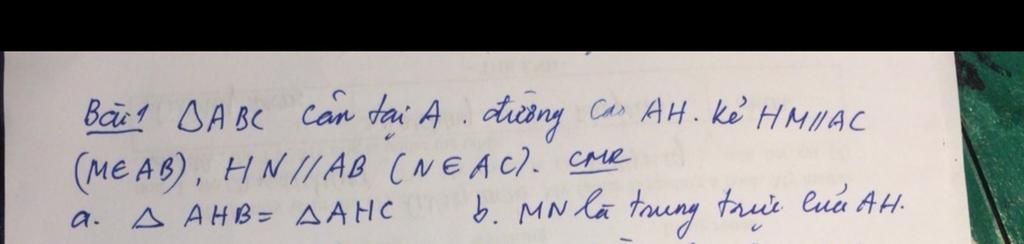 Bài 1 △ABC cân tại A. đường cao AH. kẻ HM//AC
(M∈AB), HN//AB (N∈AC). CMR
a. △AHB = △AHC b. MN là trung trực của AH.